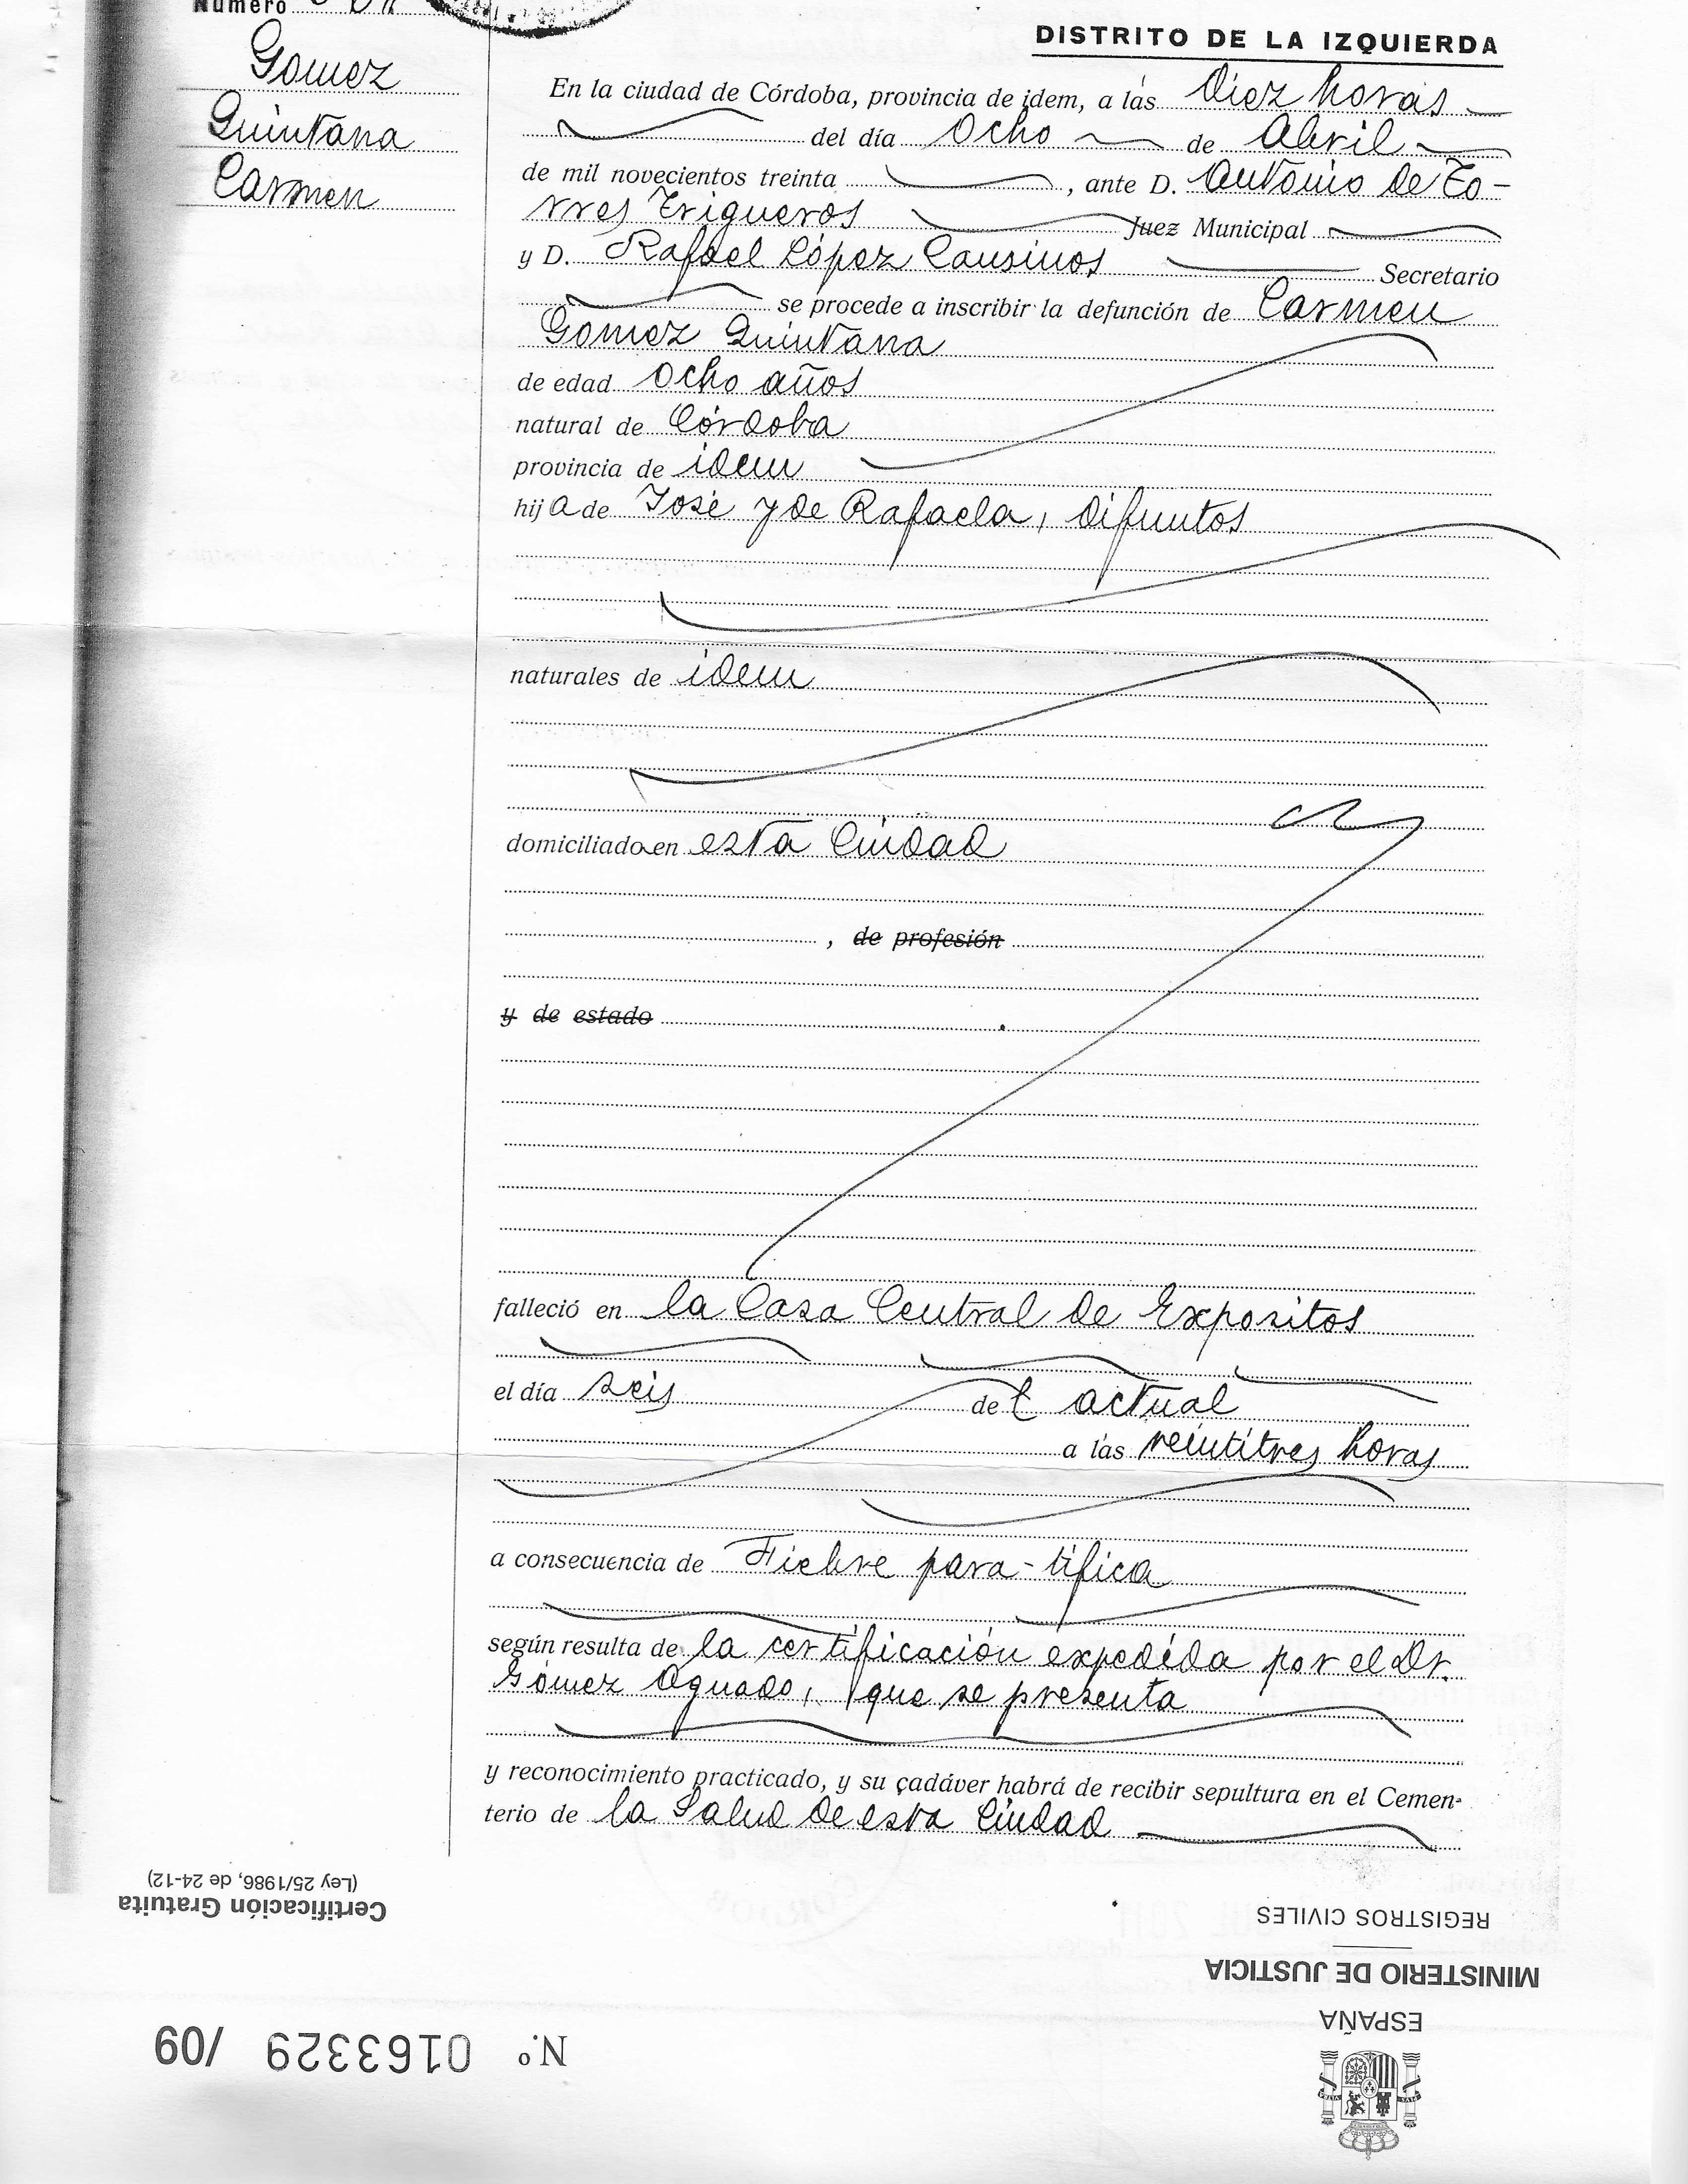 Número
DISTRITO DE LA IZQUIERDA
Gomez
Quintana
Carmen
En la ciudad de Córdoba, provincia de idem, a las Diez horas
del día Ocho de Abril
de mil novecientos treinta, ante D. Antonio de To-
rres Trigueros Juez Municipal
y D. Rafael López Cansinos Secretario
se procede a inscribir la defunción de Carmen
Gomez Quintana
de edad Ocho años
natural de Córdoba
provincia de idem
hija de José y de Rafaela, difuntos
naturales de idem
domiciliada en esta Ciudad
, de profesión
y de estado
falleció en la Casa Central de Expositos
el día seis del actual
a las veintitres horas
a consecuencia de Fiebre para-tífica
según resulta de la certificación expedida por el Dr.
Gómez Aguado, que se presenta
y reconocimiento practicado, y su cadáver habrá de recibir sepultura en el Cemen-
terio de la Salud de esta Ciudad
Certificación Gratuita
(Ley 25/1986, de 24-12)
N.º 0163329 /09
ESPAÑA
MINISTERIO DE JUSTICIA
REGISTROS CIVILES